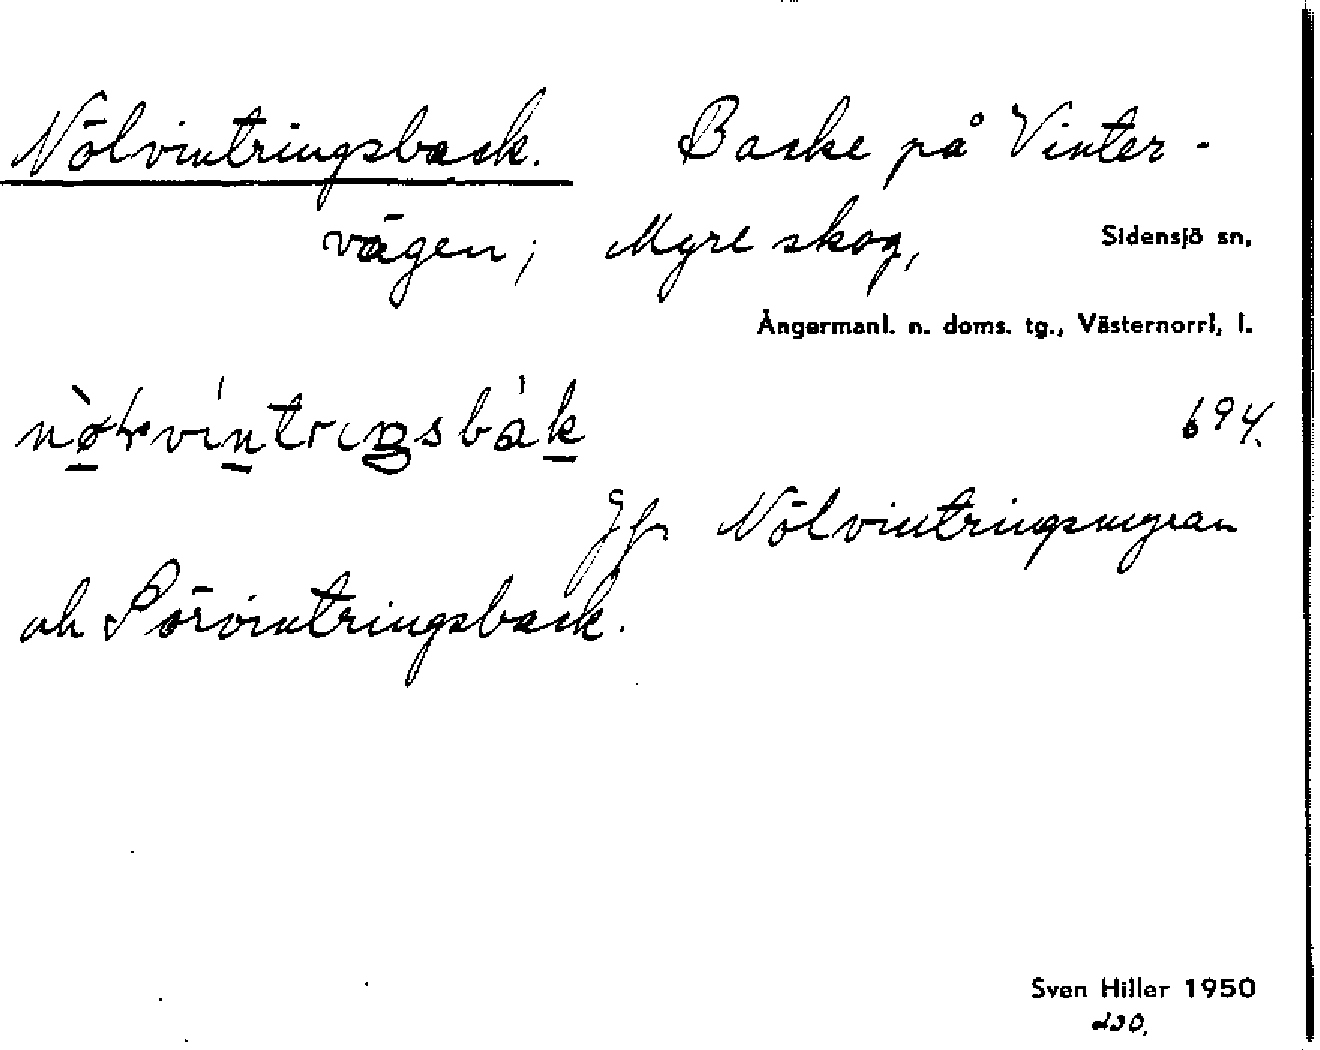 Nölvintringsback. Backe på Vinter-
vägen; Myre skog, Sidensjö sn,
Ångermanl. n. doms. tg., Västernorrl. l.
694.
Jfr Nölvintringsmyran
och Sörvintringsback.
Sven Hiller 1950